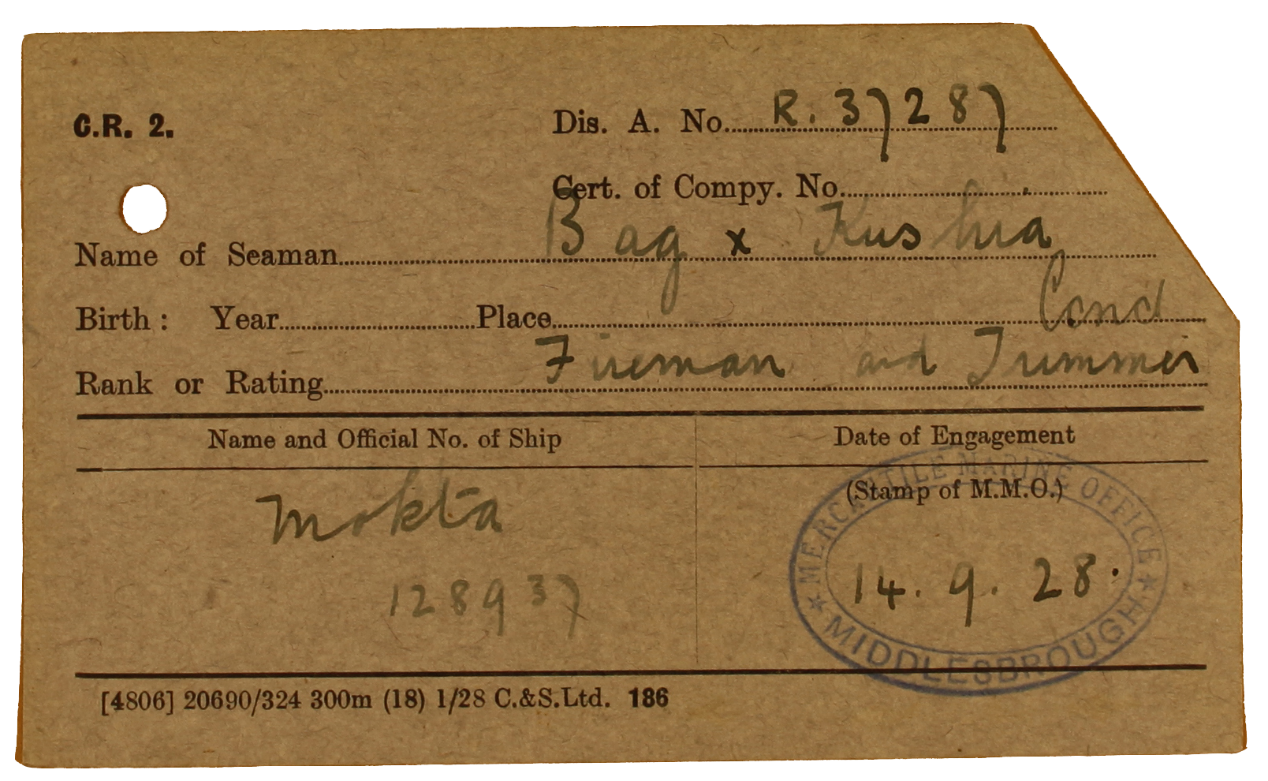 C.R. 2.
Dis. A. No. R. 37287
Cert. of Compy. No.
Name of Seaman Bag x Kushia
Birth: Year Place Cond
Rank or Rating Fireman and Trimmer
Name and Official No. of Ship
Date of Engagement
(Stamp of M.M.O.)
MERCANTILE MARINE OFFICE
Mokta
14. 9. 28.
128937
★ MIDDLESBROUGH ★
[4806] 20690/324 300m (18) 1/28 C.&S.Ltd. 186